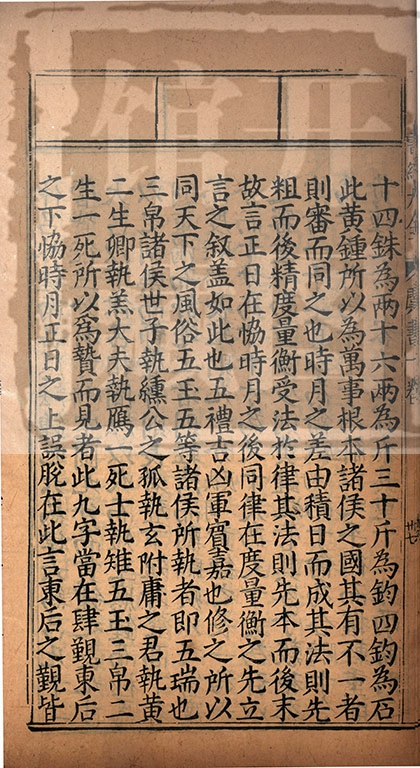 十四銖為兩十六兩為斤三十斤為鈞四鈞為石
此黃鍾所以為萬事根本諸侯之國其有不一者
則審而同之也時月之差由積日而成其法則先
粗而後精度量衡受法於律其法則先本而後末
故言正日在恊時月之後同律在度量衡之先立
言之叙盖如此也五禮吉凶軍賓嘉也修之所以
同天下之風俗五玉五等諸侯所執者即五瑞也
三帛諸侯世子執纁公之孤執玄附庸之君執黃
二生卿執羔大夫執鴈一死士執雉五玉三帛二
生一死所以爲贄而見者此九字當在肆覲東后
之下恊時月正日之上誤脫在此言東后之覲皆